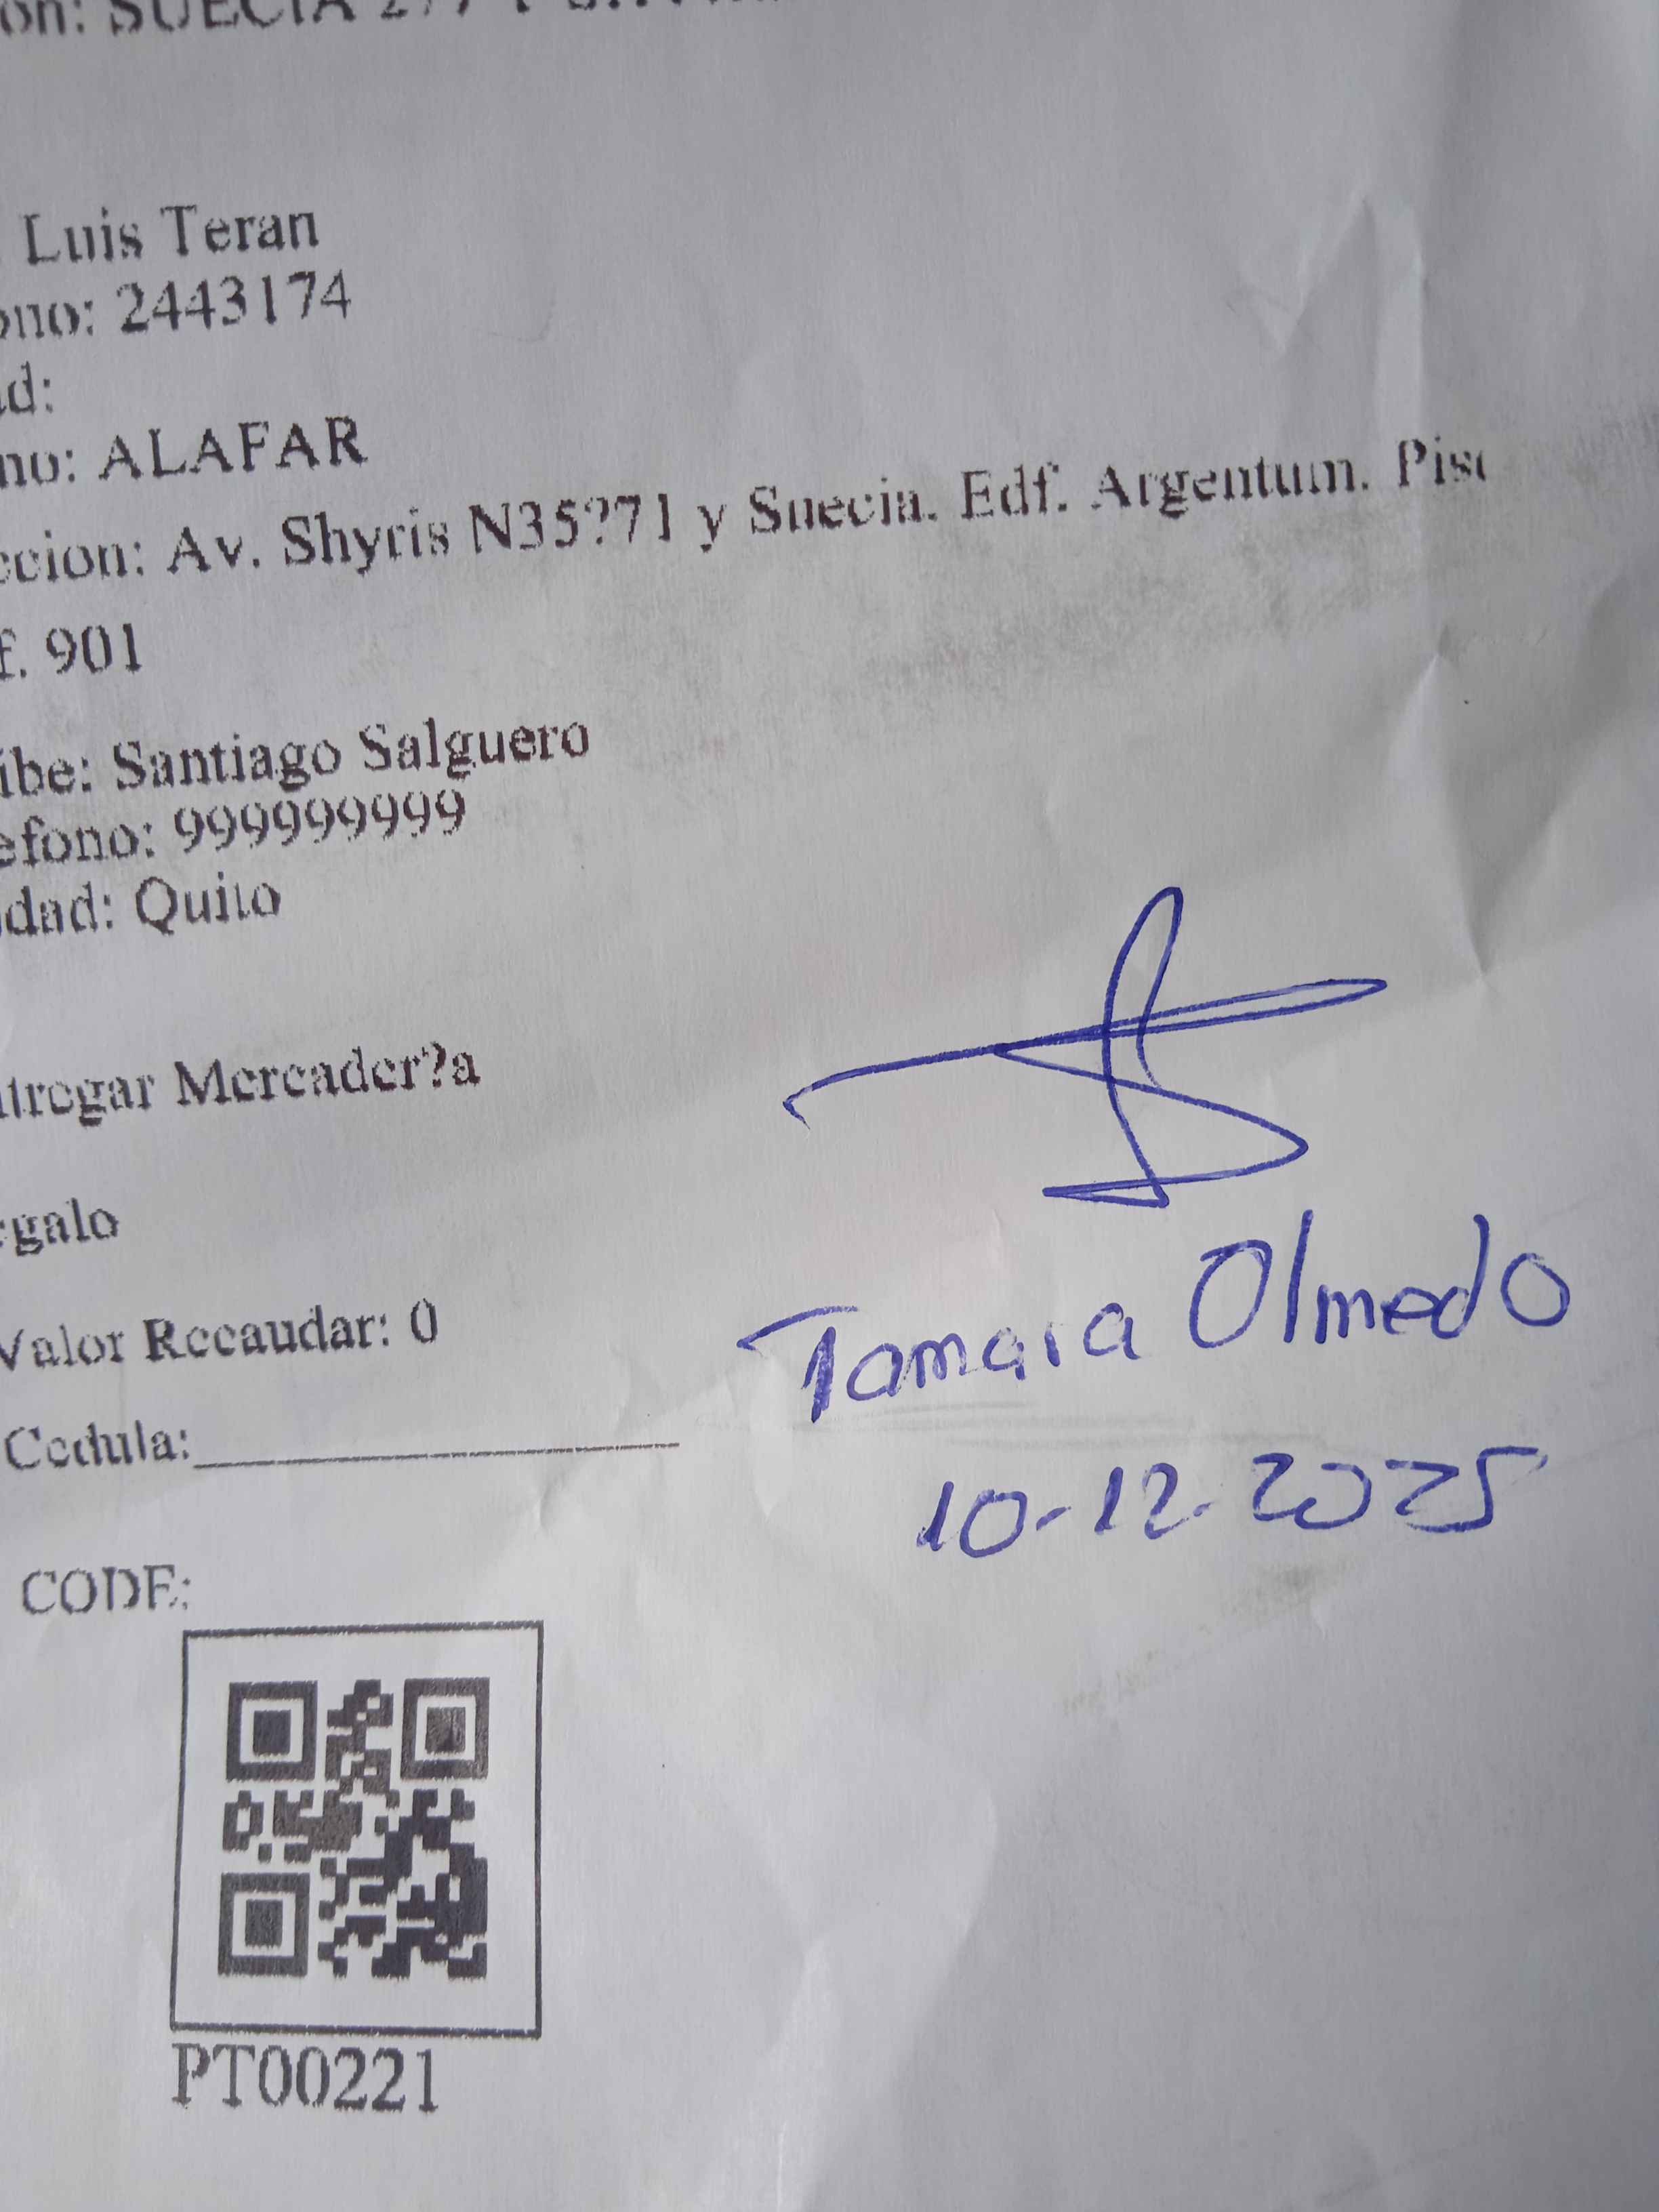 on: SUECIA 277 Y
Luis Teran
ono: 2443174
ad:
no: ALAFAR
ccion: Av. Shyris N35?71 y Suecia. Edf. Argentum. Piso
f. 901
ibe: Santiago Salguero
efono: 999999999
dad: Quito
ntregar Mercader?a
egalo
Valor Recaudar: 0
Cedula:
Tamara Olmedo
10-12-2025
CODE:
PT00221